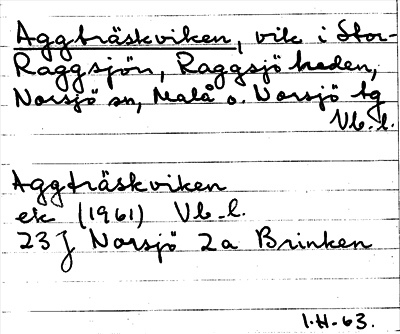 Aggträskviken, vik i Stor-
Raggsjön, Raggsjö heden,
Norsjö sn, Malå o. Norsjö tg
Vb. l.
Aggträskviken
ek (1961) Vb. l.
23 J Norsjö 2a Brinken
I.H-63.